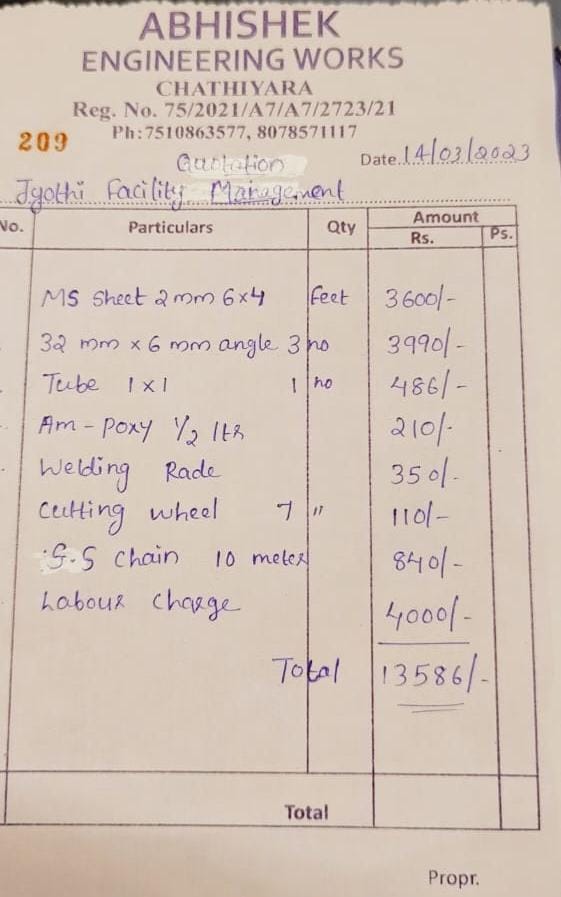 ABHISHEK
ENGINEERING WORKS
CHATHIYARA
Reg. No. 75/2021/A7/A7/2723/21
Ph:7510863577, 8078571117
209
Quotation
Date 14/03/2023
Jyothi Facility Management
No. Particulars Qty Amount
Rs. Ps.
MS Sheet 2mm 6x4 feet 3600/-
32 mm x 6 mm angle 3 no 3990/-
Tube 1x1 1 no 486/-
Am-Poxy 1/2 ltr 210/-
Welding Rade 350/-
Cutting wheel 7 " 110/-
S.S chain 10 meter 840/-
Labour Charge 4000/-
Total 13586/-
Total
Propr.